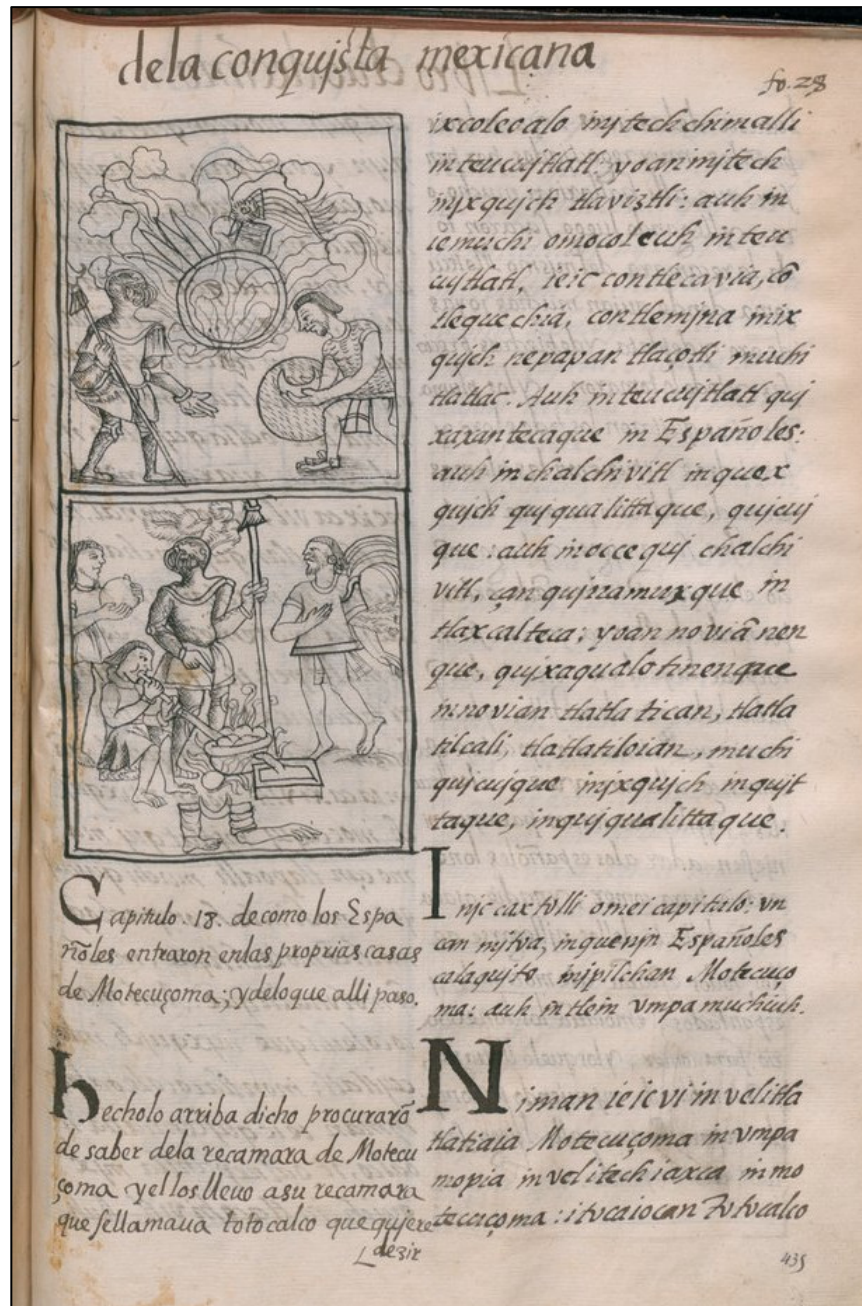 dela conquista mexicana
fo. 28
Capitulo. 18. de como los Espa
ñoles entraron enlas proprias casas
de Motecuçoma; y delo que alli paso.
hecho lo arriba dicho procurarõ
de saber dela recamara de Motecu
çoma y el los lleuo a su recamara
que se llamaua totocalco que qujere
dezir
ixcoleoalo injtech chimalli
in teucujtlatl: yoan injtech
injxqujch tlaviztli: auh in
iemuchi omocoleuh in teu
cujtlatl, ieic contlecavia, cõ
tlequechia, contlemjna in ix
qujch nepapan tlaçotli muchi
tlatlac. Auh in teucujtlatl quj
xaxantecaque in Españoles:
auh in chalchivitl in quex
qujch qujqualittaque, qujcuj
que: auh in occequj chalchi
vitl, çan qujnamuxque in
tlaxcalteca: yoan noviã nen
que, qujxaqualotinenque
in novian tlatlatican, tlatla
tilcali, tlatlatiloian, muchi
qujcujque injxqujch in qujt
taque, in qujqualittaque.
Injc caxtulli omei capitulo: vn
can mjtva, in quenjn Españoles
calaqujto injpilchan Motecuço
ma: auh in tlein vmpa muchiuh.
Niman ieic vi in vel itla
tlatiaia Motecuçoma in vmpa
mopia in vel itech iaxca in mo
tecuçoma: itvcaiocan Tvtvcalco
435